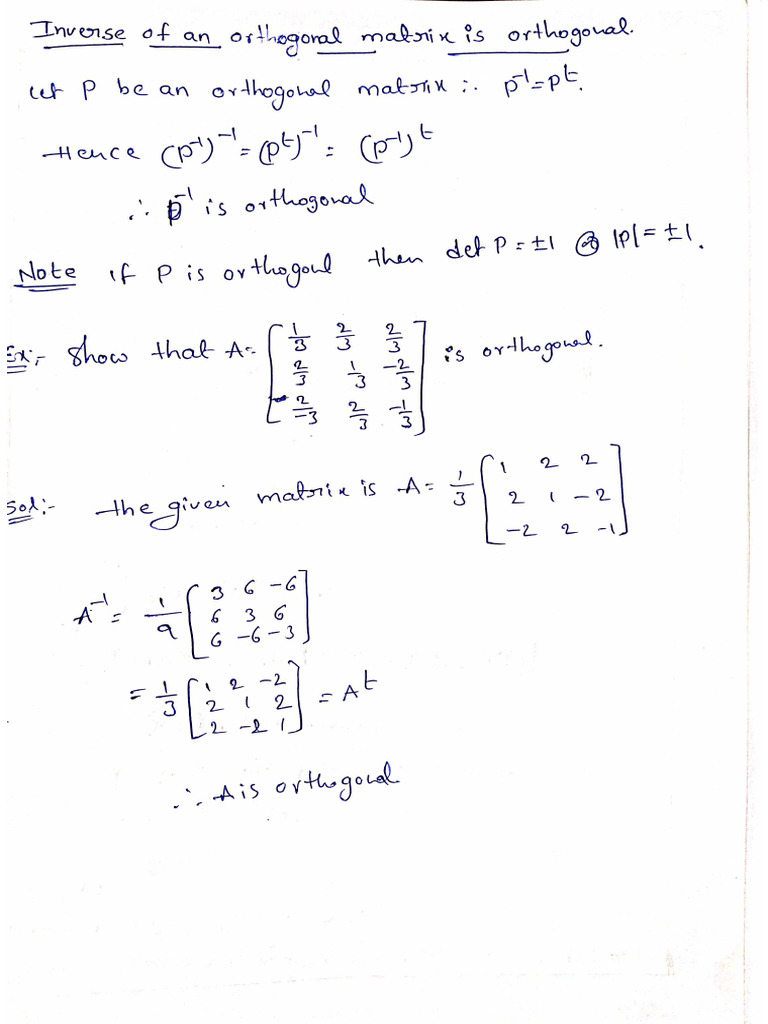 Inverse of an orthogonal matrix is orthogonal.
Let P be an orthogonal matrix ∴ P⁻¹=Pᵗ.
Hence (P⁻¹)⁻¹ = (Pᵗ)⁻¹ = (P⁻¹)ᵗ
∴ P⁻¹ is orthogonal
Note if P is orthogoul then det P = ±1 or |P| = ±1.
Ex:- Show that A= [1/3 2/3 2/3
2/3 1/3 -2/3
-2/-3 2/3 -1/3] is orthogonal.
Sol:- the given matrix is A = 1/3 [1 2 2
2 1 -2
-2 2 -1]
A⁻¹ = 1/9 [3 6 -6
6 3 6
6 -6 -3]
= 1/3 [1 2 -2
2 1 2
2 -2 1] = Aᵗ
∴ A is orthogonal